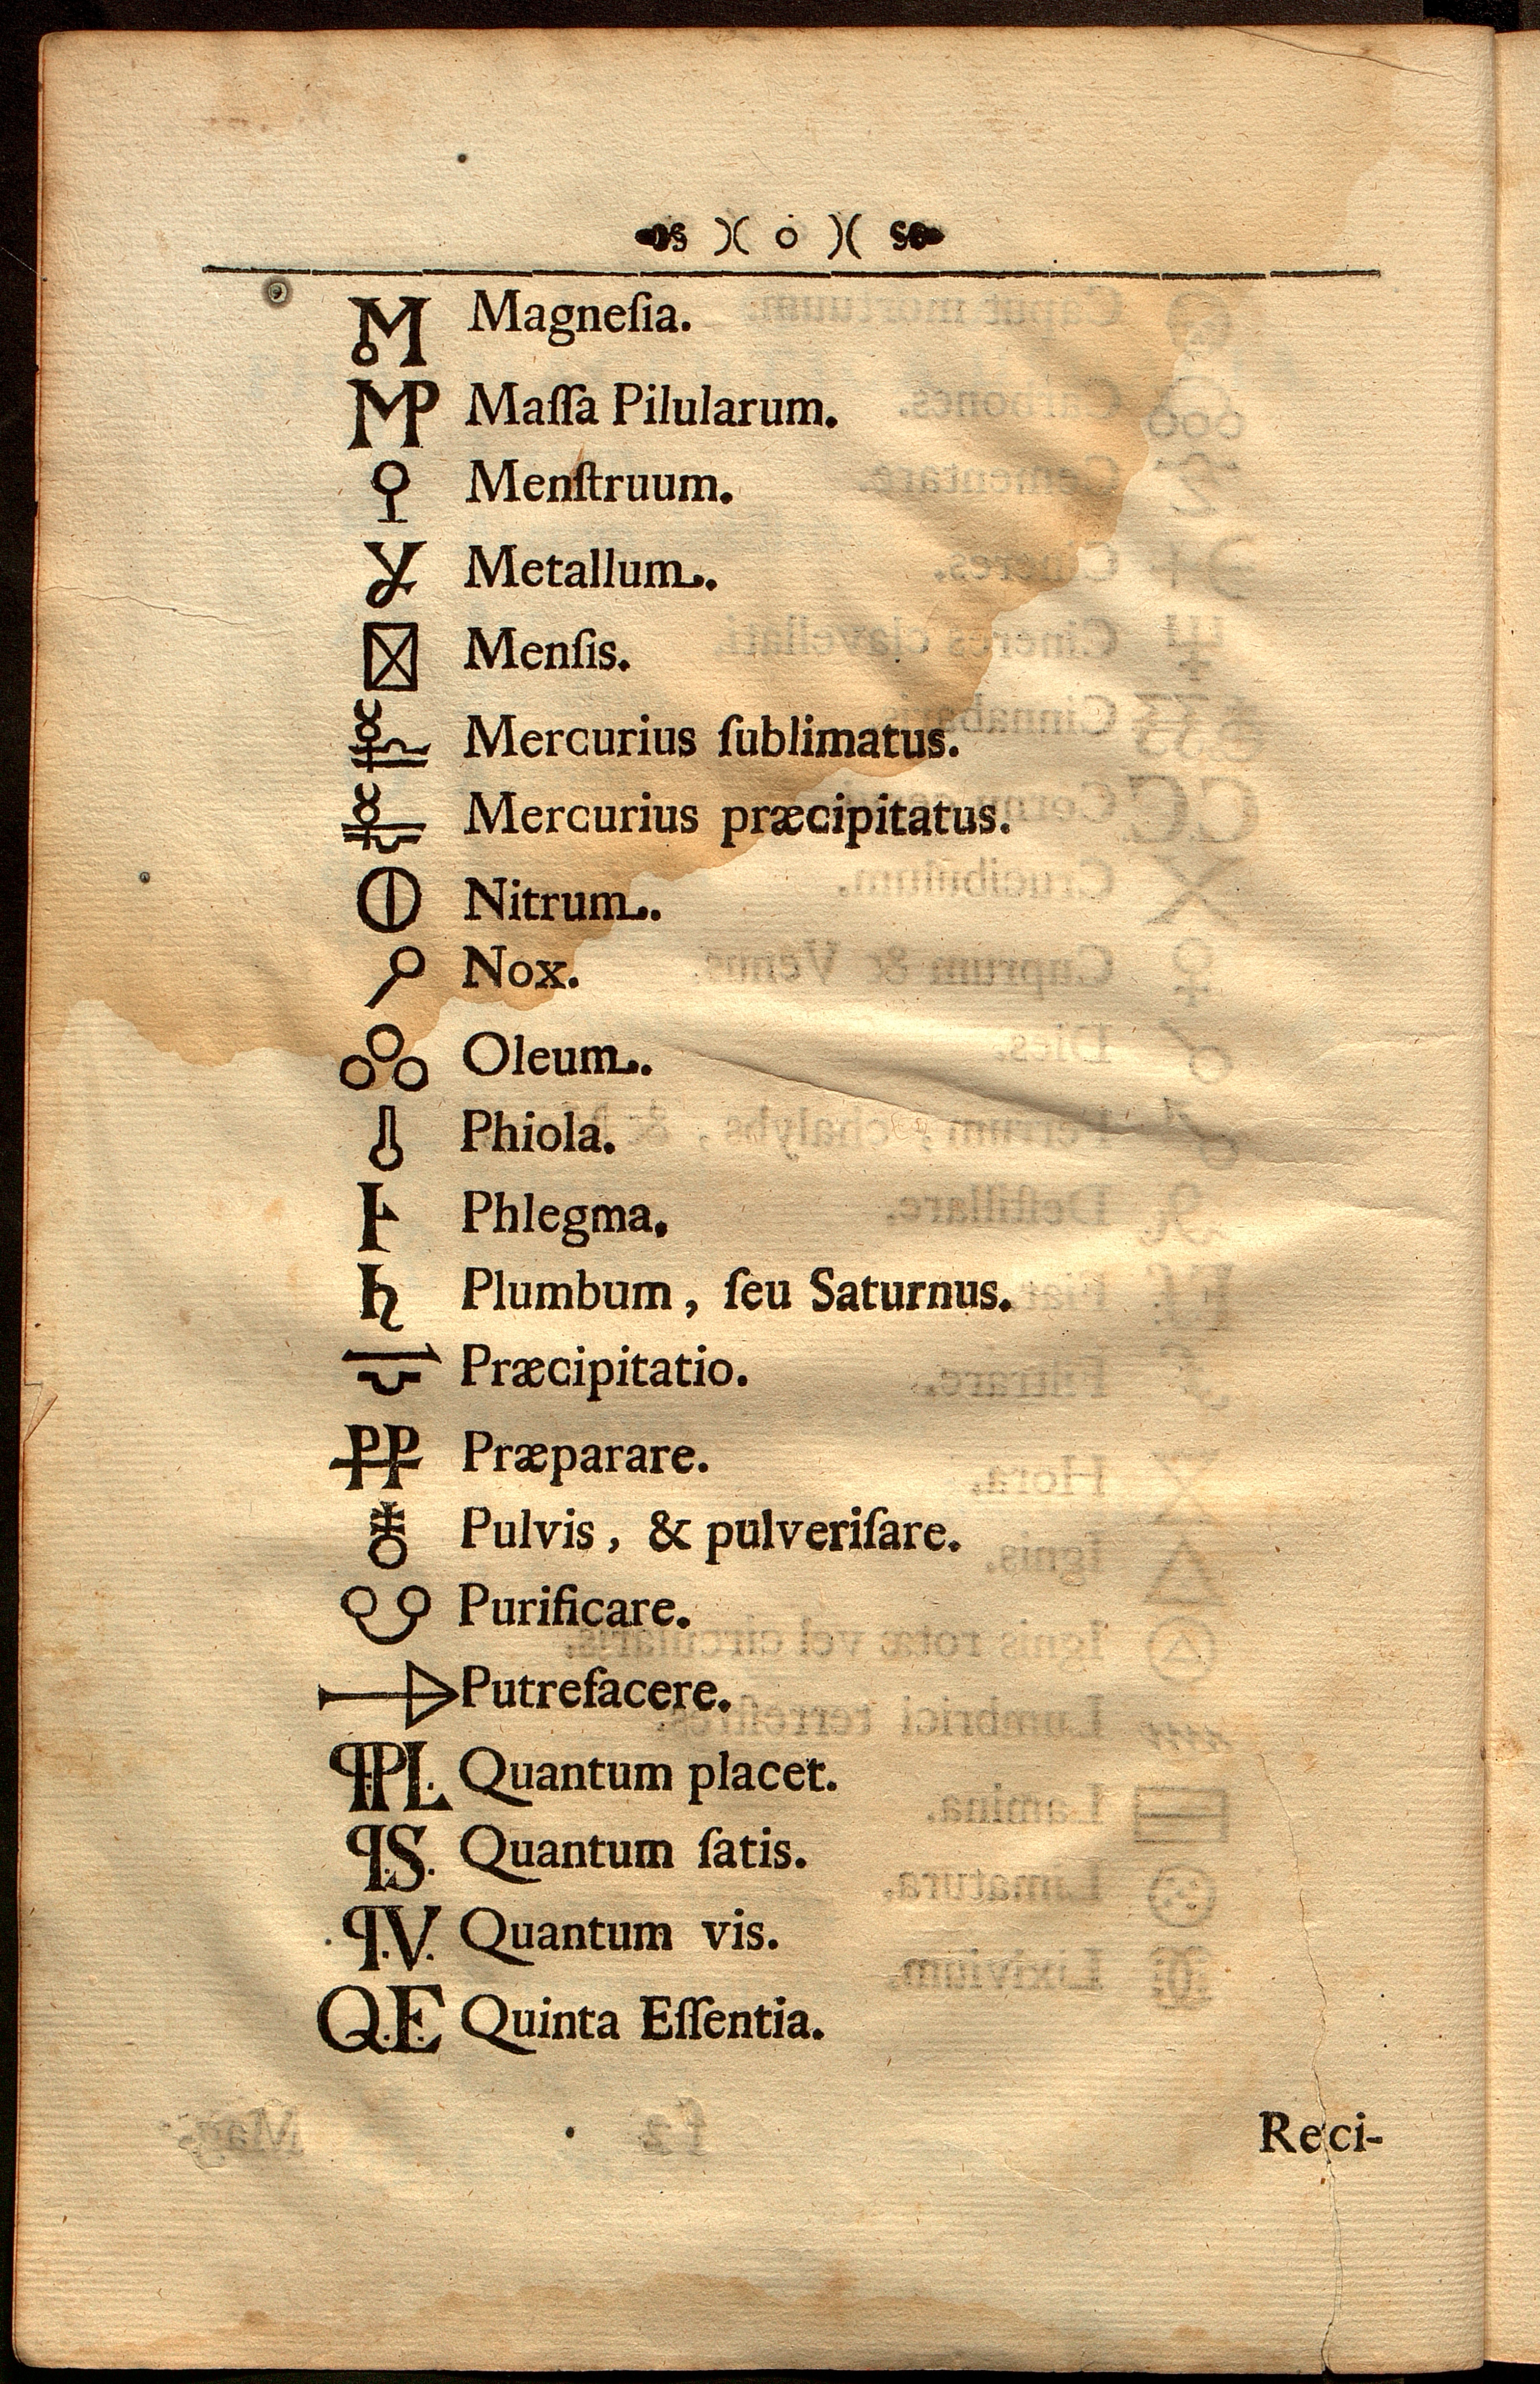 Magneſia.
Maſſa Pilularum.
Menſtruum.
Metallum.
Menſis.
Mercurius ſublimatus.
Mercurius præcipitatus.
Nitrum.
Nox.
Oleum.
Phiola.
Phlegma.
♄ Plumbum, ſeu Saturnus.
Præcipitatio.
PP Præparare.
Pulvis, & pulveriſare.
Purificare.
Putrefacere.
q.PL. Quantum placet.
q.S. Quantum ſatis.
q.V. Quantum vis.
Q.E. Quinta Eſſentia.
Reci-